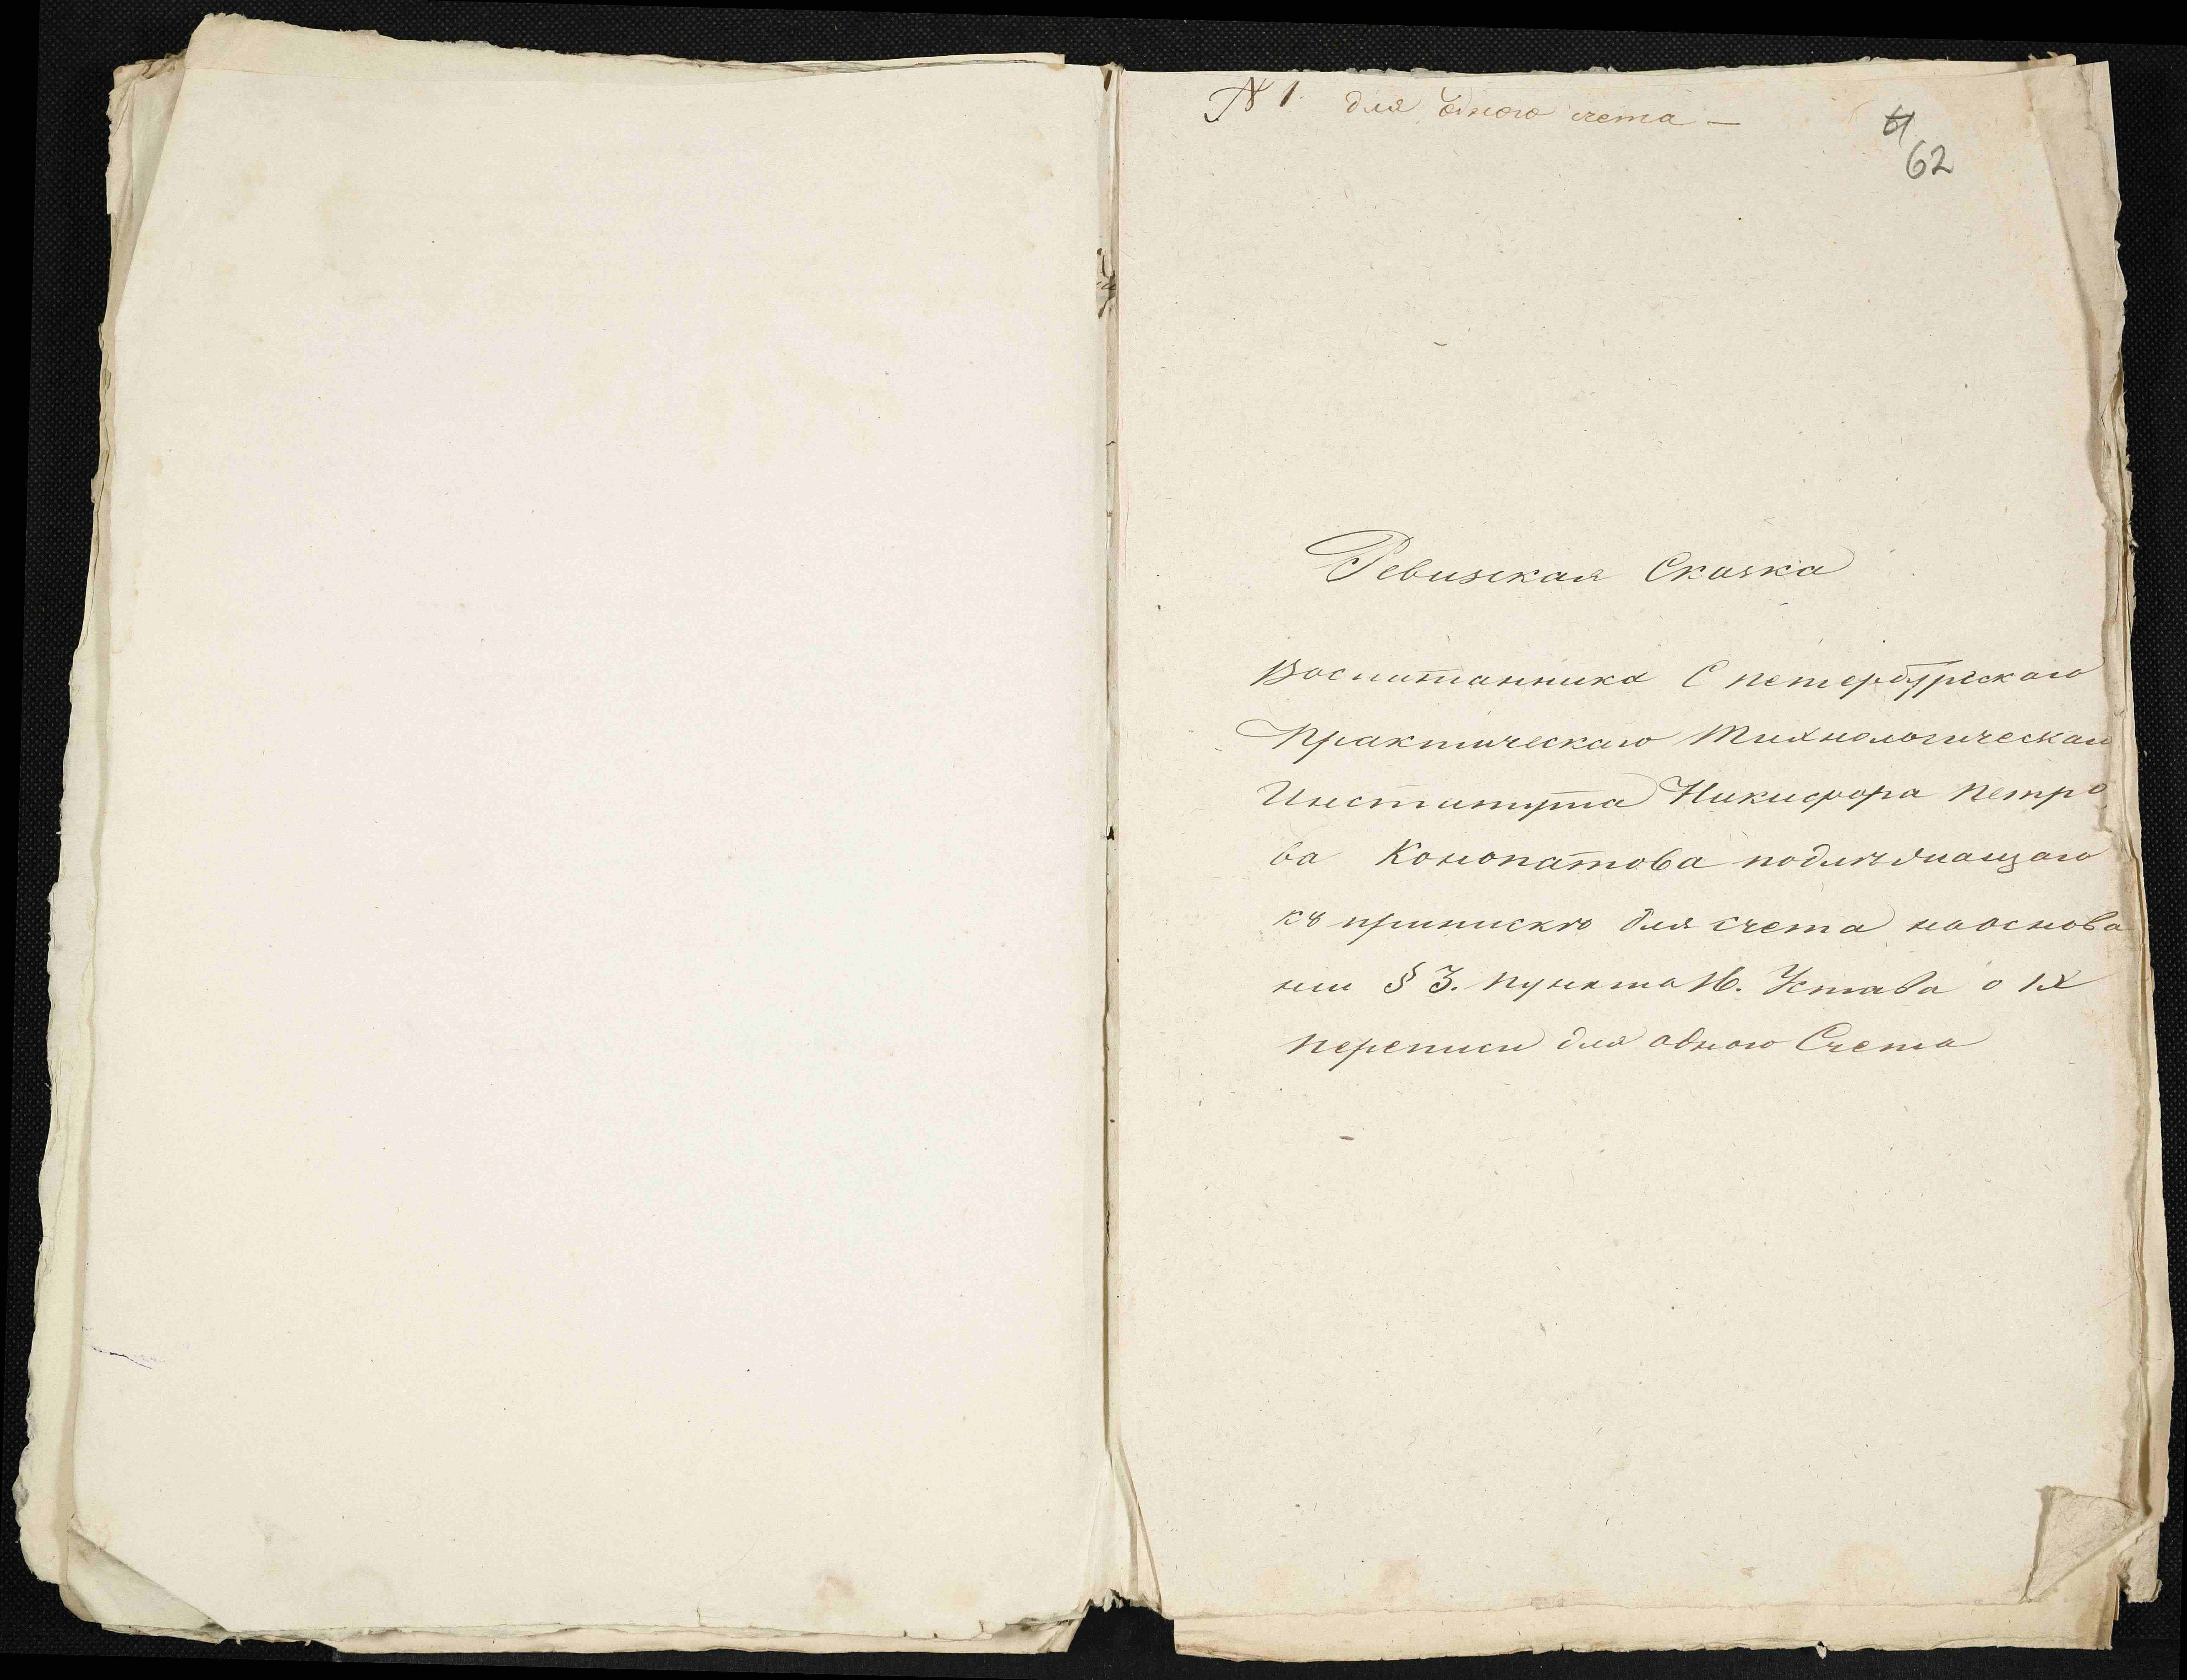 № 1. для одного счета —
62
Ревизская Сказка
Воспитанника С петербургскаго
Практическаго Технологическаго
Института Никифора Петро
ва Конопатова подлежащаго
къ припискѣ для счета на основа
нии § 3. пункта 16. Устава о IX
переписи для одного Счета